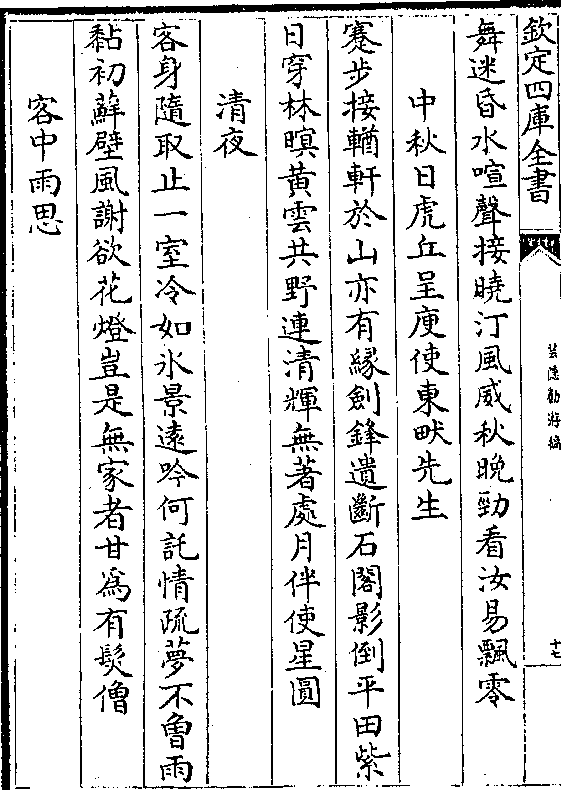 欽定四庫全書
芸隱勌游稿
十七
舞迷昏水喧聲接曉汀風威秋晚勁看汝易飄零
中秋日虎丘呈庾使東畎先生
蹇步接輶軒於山亦有緣劍鋒遺斷石閣影倒平田紫
日穿林暝黄雲共野連清輝無著處月伴使星圓
清夜
客身隨取止一室冷如氷景遠吟何託情疏夢不魯雨
黏初蘚壁風謝欲花燈豈是無家者甘為有髮僧
客中雨思